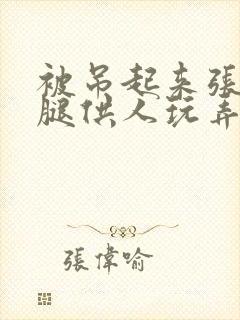 被吊起来张
腿供人玩弄
張偉喻